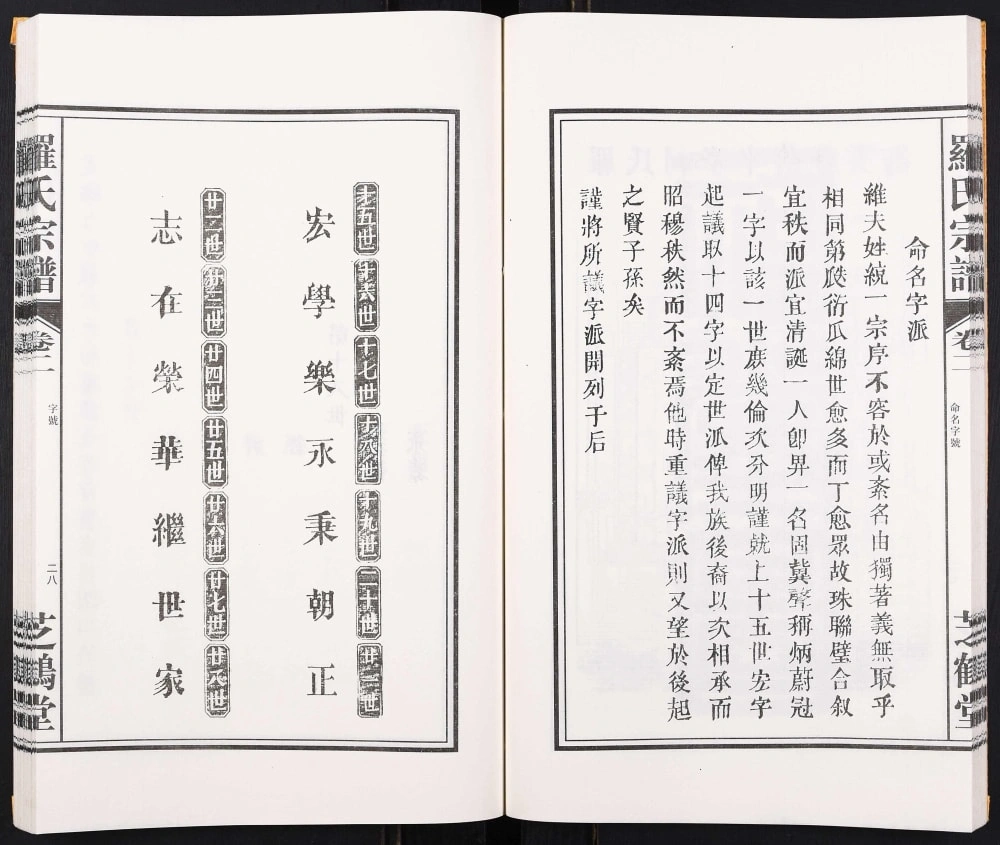 羅氏宗譜
卷二
命名字號
芝鶴堂
命名字派
維夫姓統一宗序不容於或紊名由獨著義無取乎
相同第瓞衍瓜綿世愈多而丁愈眾故珠聯璧合敘
宜秩而派宜清誕一人卽畀一名固冀聲稱炳蔚冠
一字以該一世庶幾倫次分明謹就上十五世宏字
起議取十四字以定世派俾我族後裔以次相承而
昭穆秩然而不紊焉他時重議字派則又望於後起
之賢子孫矣
謹將所議字派開列于后
十五世 十六世 十七世 十八世 十九世 二十世 廿一世
宏學樂永秉朝正
廿二世 廿三世 廿四世 廿五世 廿六世 廿七世 廿八世
志在榮華繼世家
羅氏宗譜
卷二
字號
二八
芝鶴堂